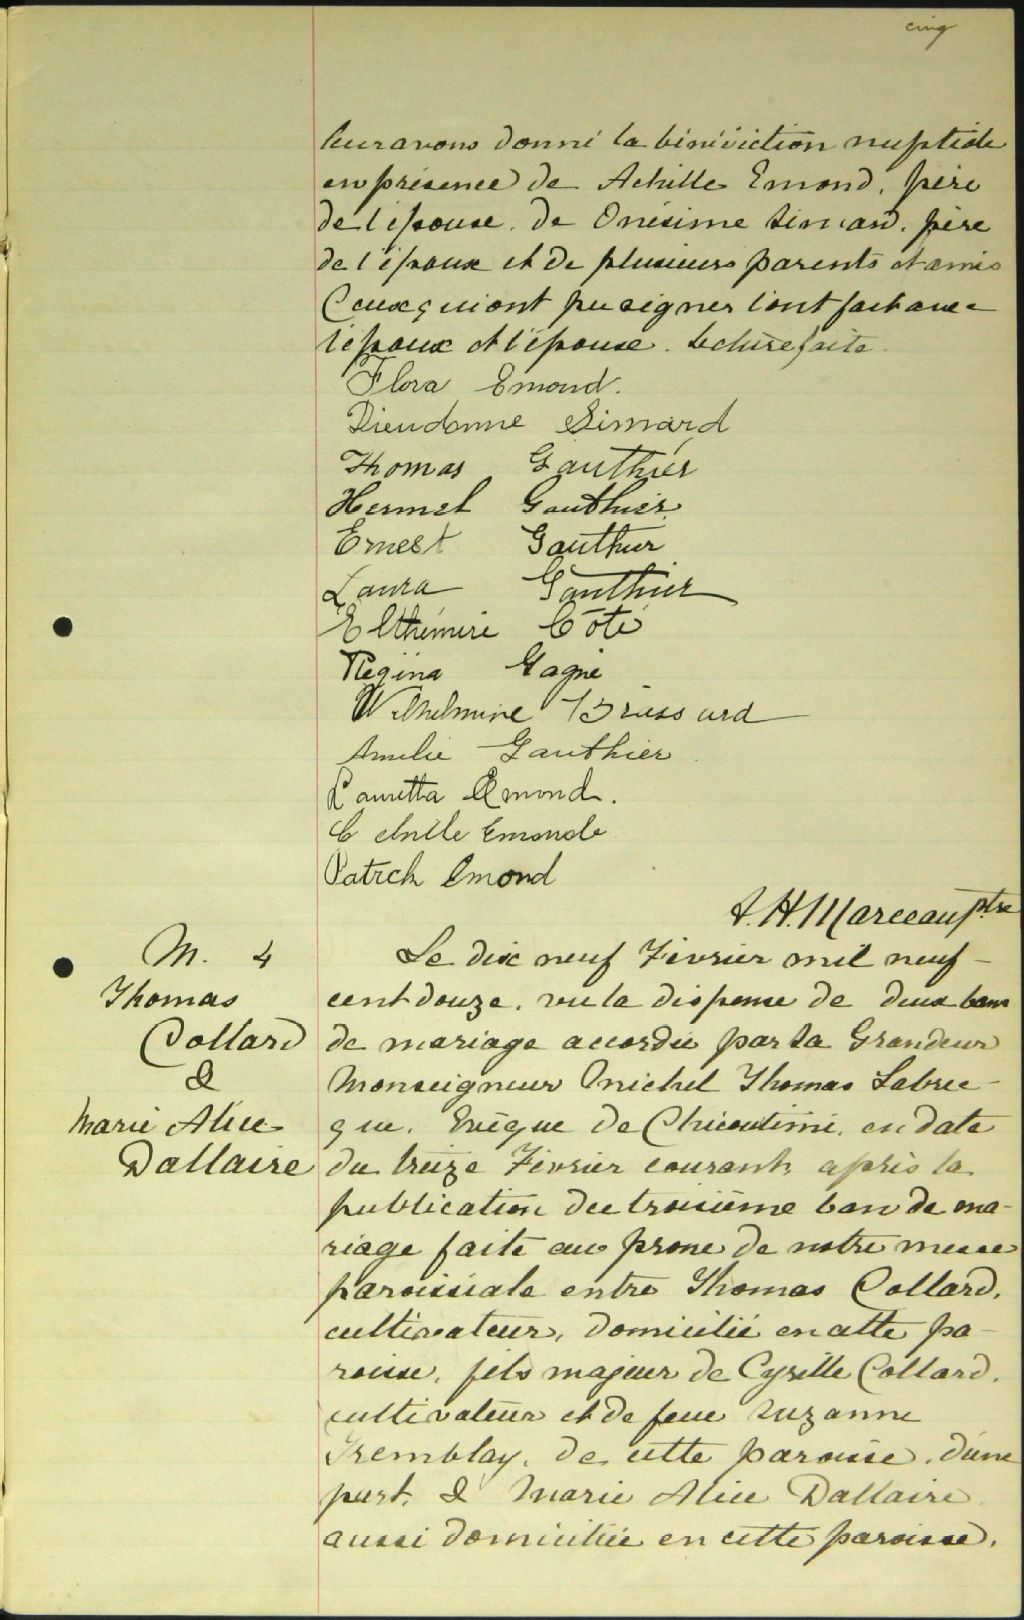 cinq
leur avons donné la bénédiction nuptiale
en présence de Achille Emond, père
de l'épouse, de Onésime Simard, père
de l'époux et de plusieurs parents et amis
Ceux qui ont pu signer l'ont fait avec
l'époux et l'épouse. Lecture faite.
Flora Emond.
Dieudonne Simard
Thomas Gauthier
Hermel Gauthier
Ernest Gauthier
Laura Gauthier
Elthémire Côté
Régina Gagné
Wilhelmine Brassard
Amelie Gauthier
Lauretta Emond.
Emonde
Patrck Emond
J. H. Marceau ptre
M. 4
Thomas
Collard
&
Marie Alice
Dallaire
Le dix neuf Février mil neuf-
cent douze, vu la dispense de deux bans
de mariage accordée par Sa Grandeur
Monseigneur Michel Thomas Labrec-
que, Evêque de Chicoutimi, en date
du treize Février courant, après la
publication du troisième ban de ma-
riage faite au prône de notre messe
paroissiale entre Thomas Collard,
cultivateur, domicilié en cette pa-
roisse, fils majeur de Cyrille Collard,
cultivateur et de feue Suzanne
Tremblay, de cette paroisse, d'une
part, & Marie Alice Dallaire
aussi domiciliée en cette paroisse,